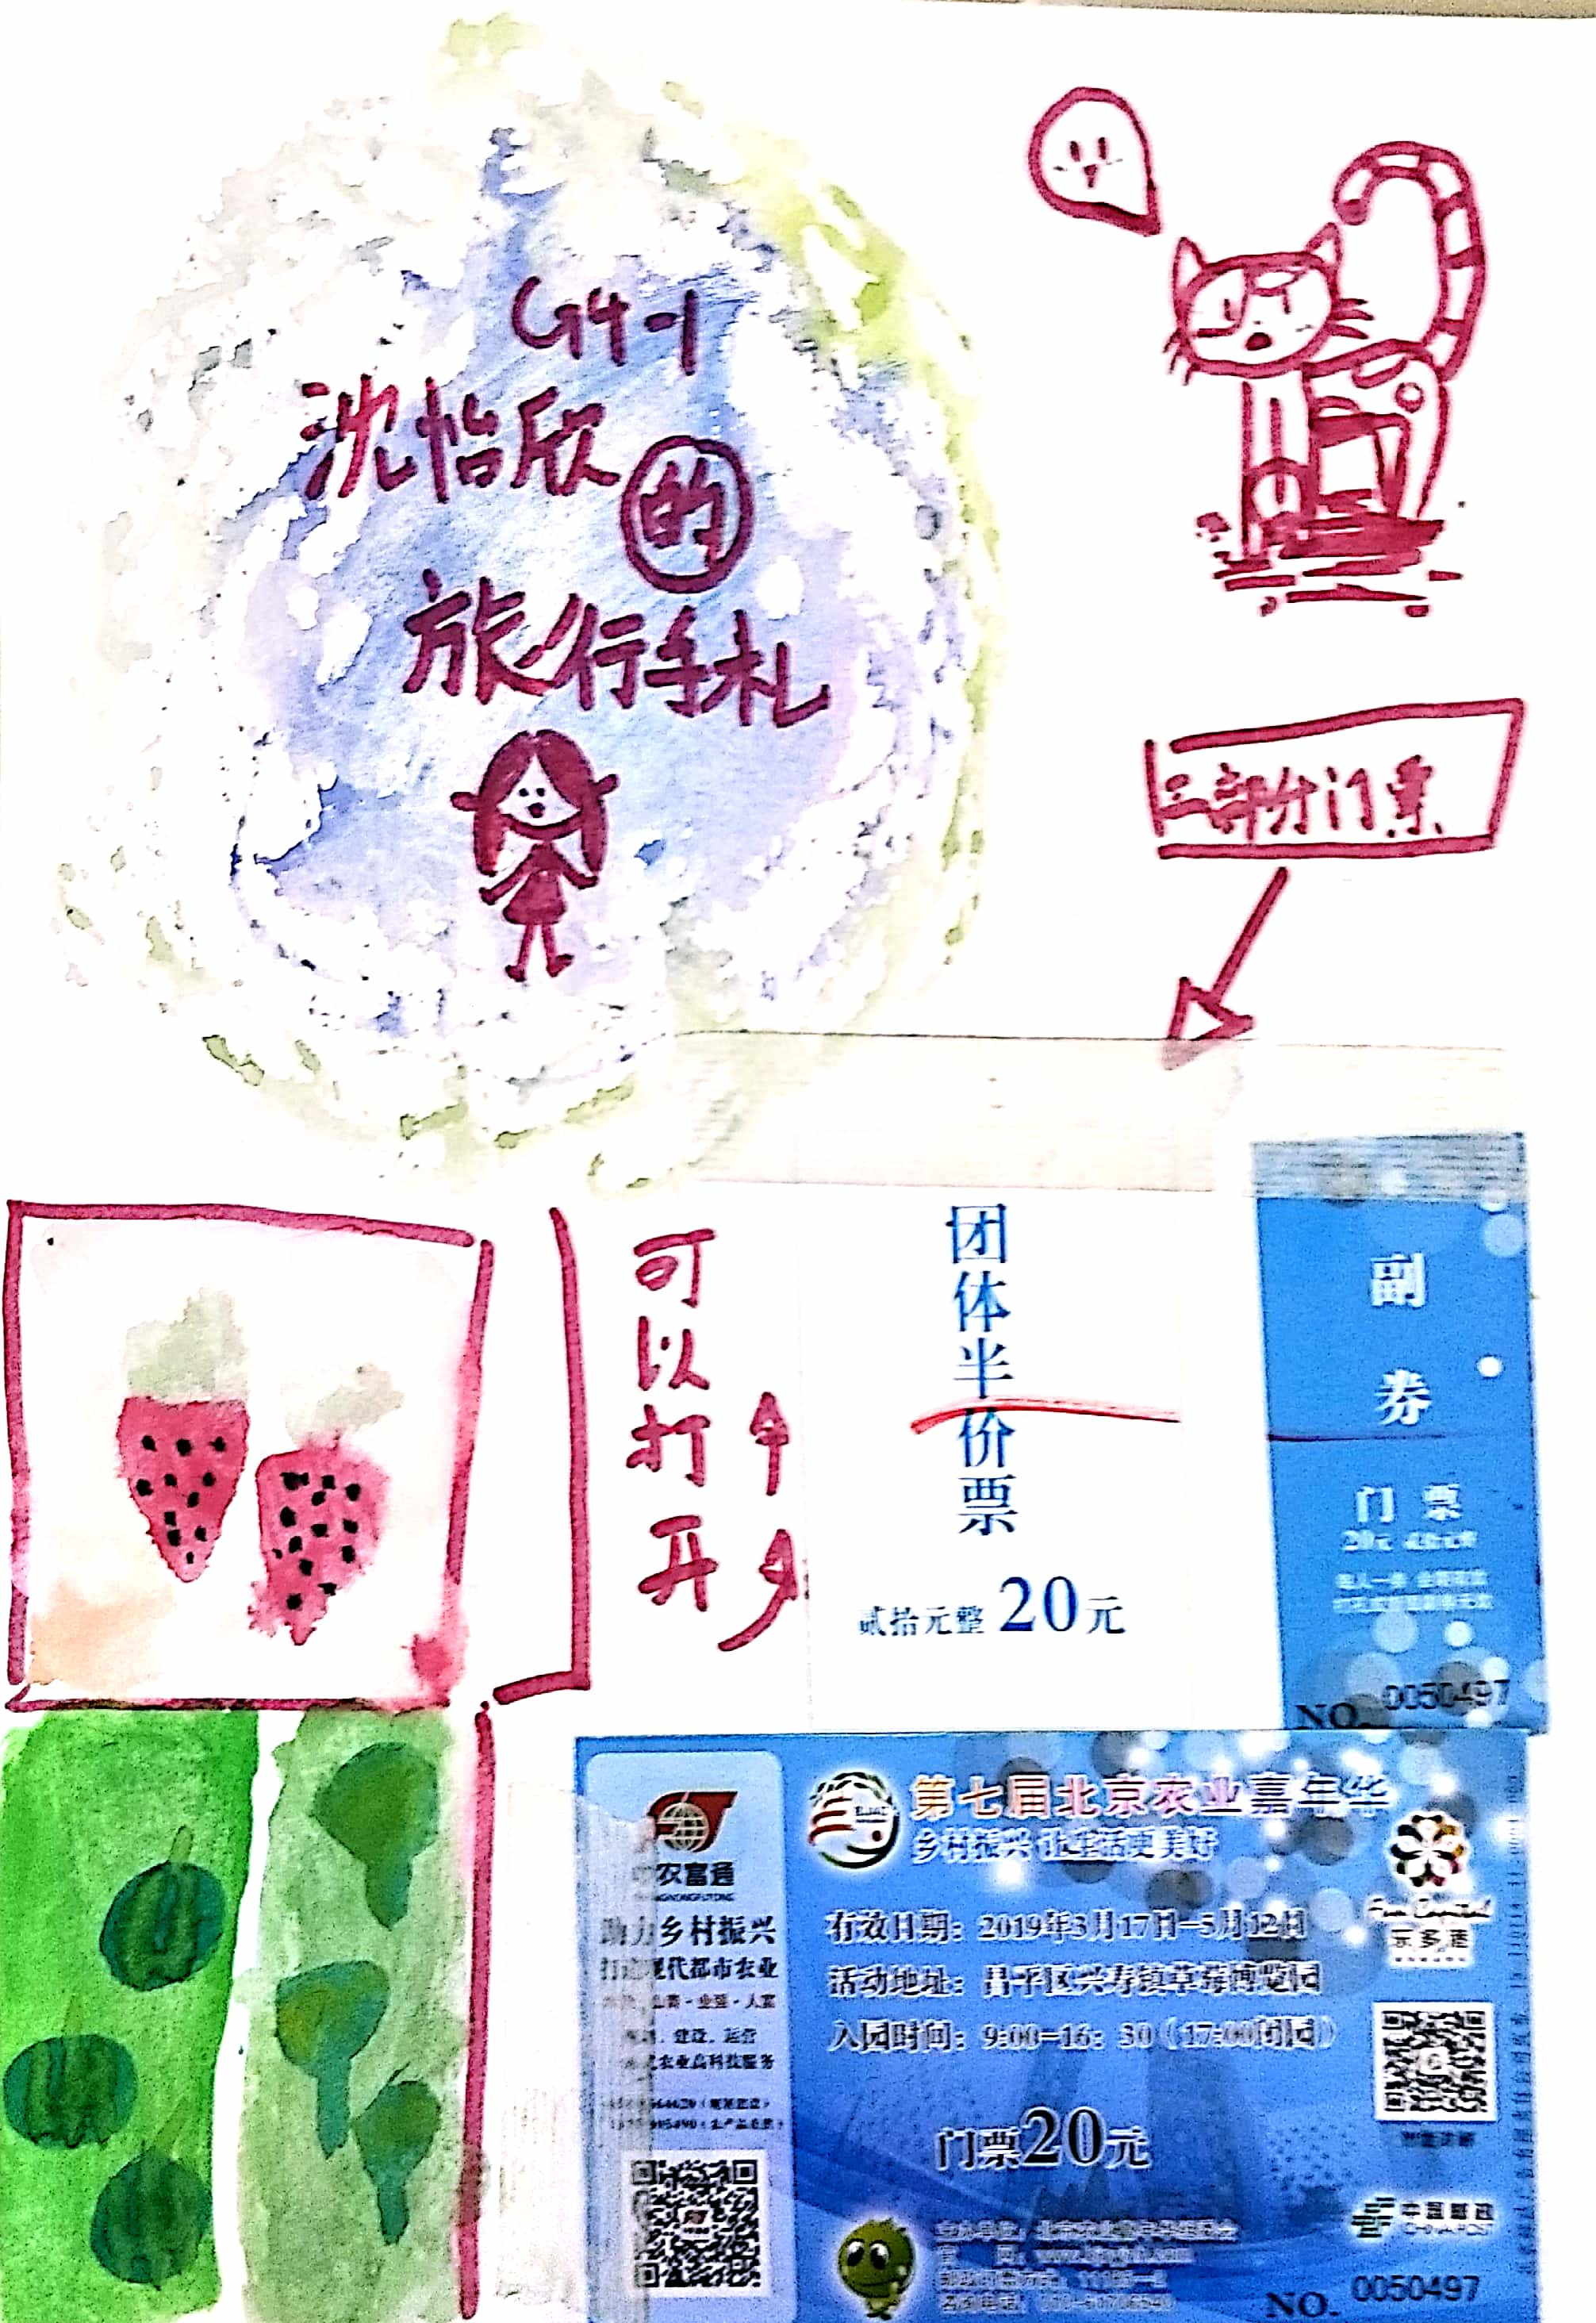 G4-1
沈怡欣的
旅行手札
三部分门票
可以打开
团体半价票
贰拾元整 20元
副券
门票
20元
NO. 0050497
农富通
助力乡村振兴
打造现代都市农业
第七届北京农业嘉年华
乡村振兴 让生活更美好
有效日期：2019年3月17日-5月12日
活动地址：昌平区兴寿镇草莓博览园
入园时间：9:00-16：30（17:00闭园）
门票20元
乐多港
中国邮政
CHINA POST
NO. 0050497